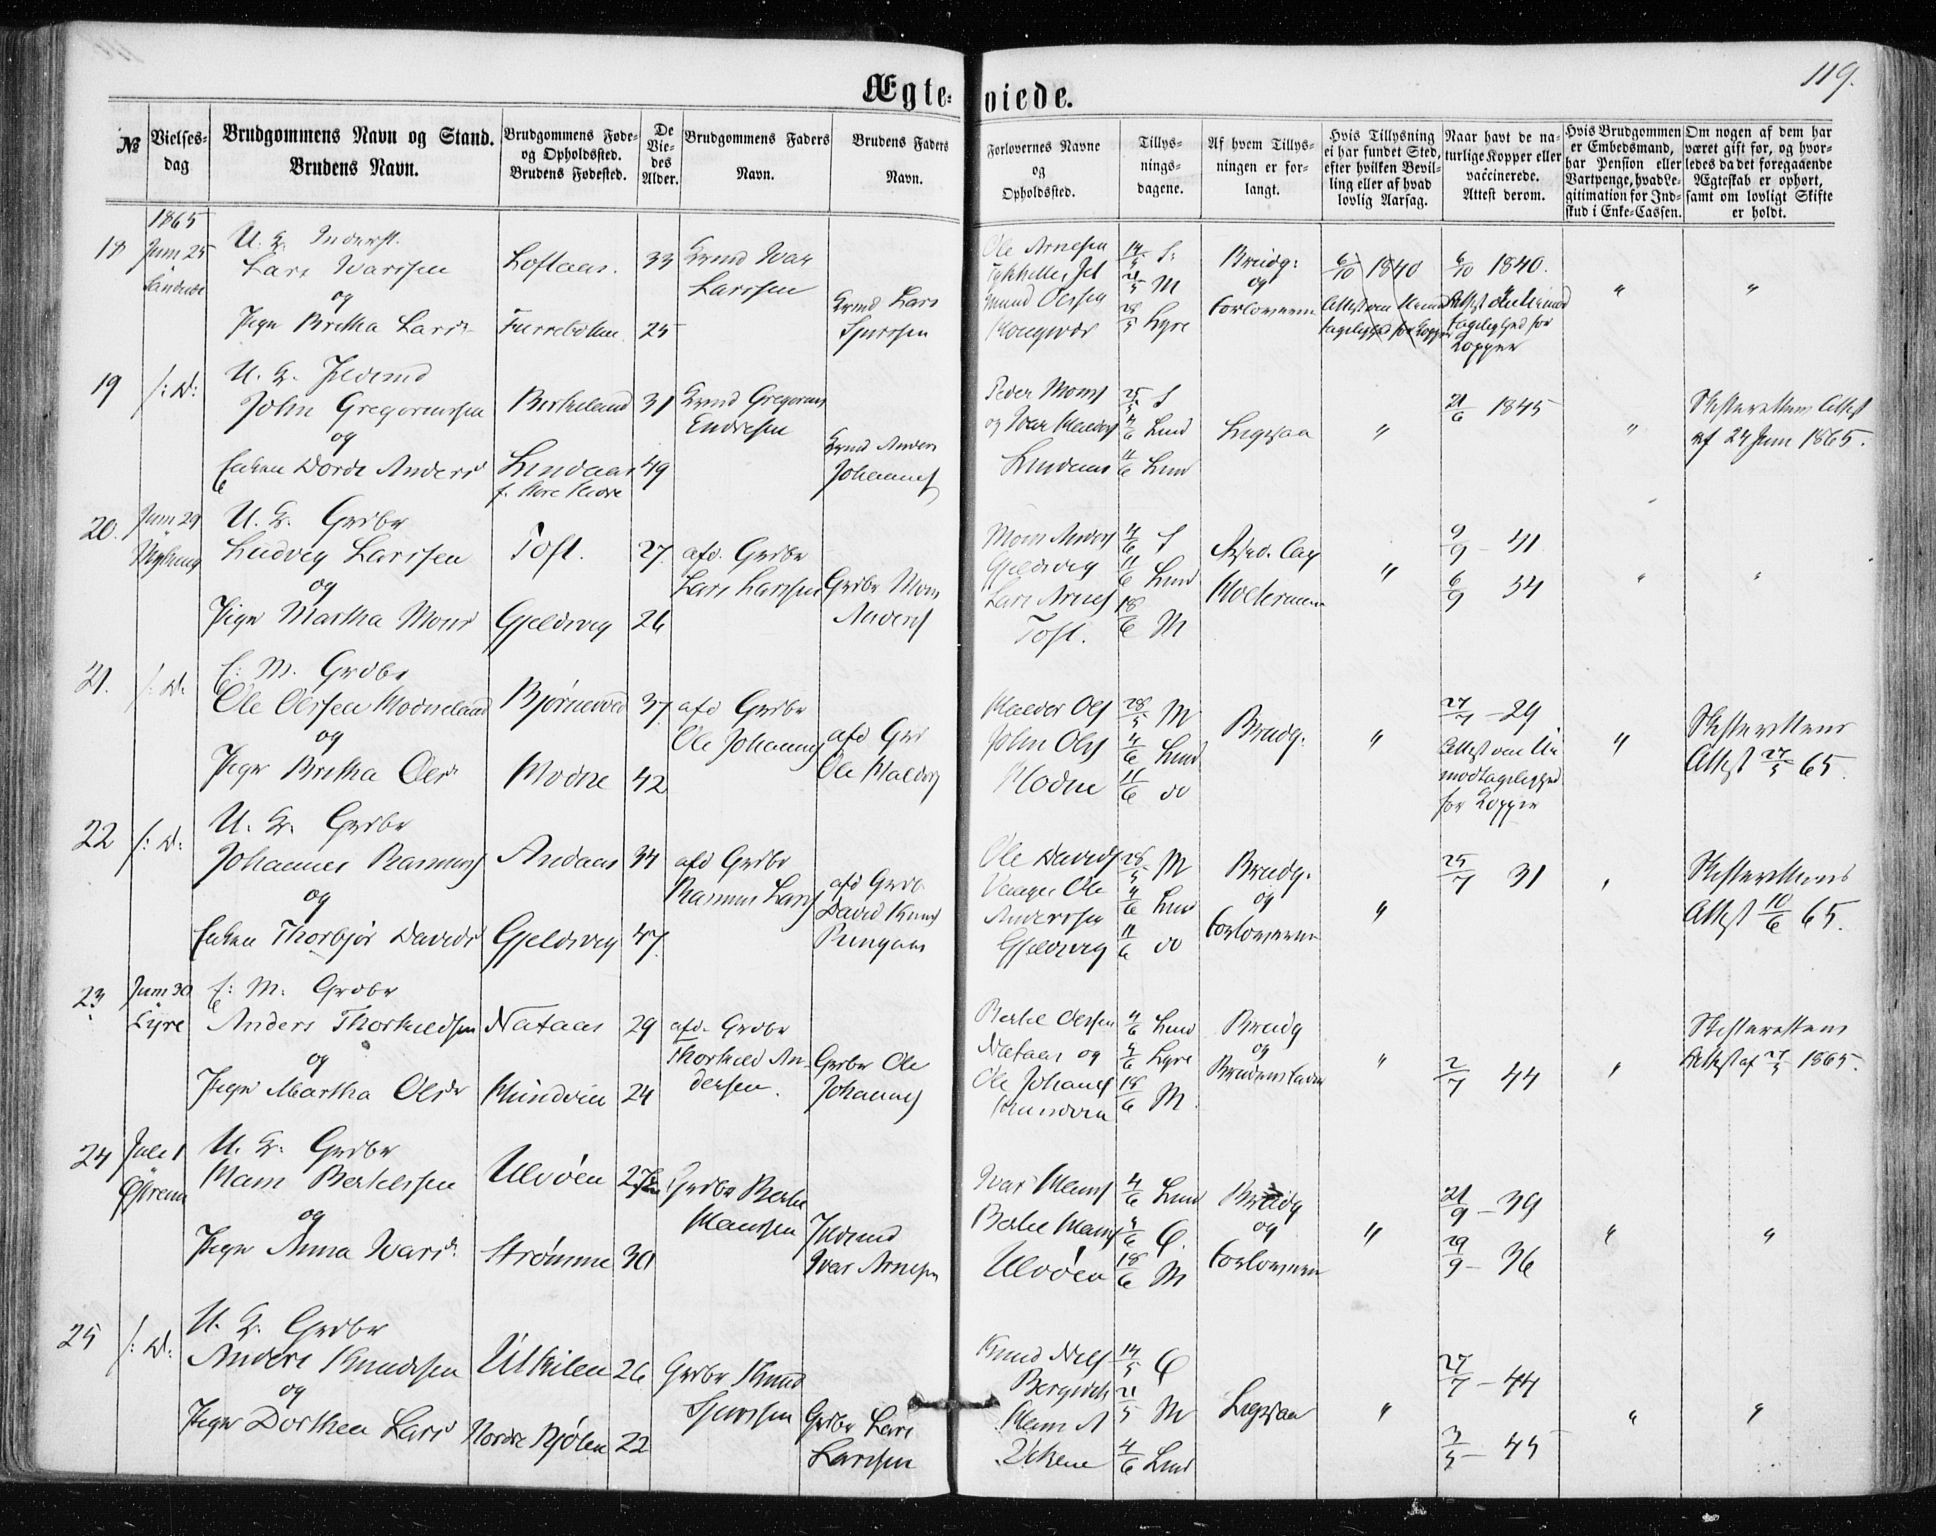 119.
Ægte-
viede.
№
Vielses-
dag
Brudgommens Navn og Stand.
Brudens Navn.
Brudgommens Føde-
og Opholdssted.
Brudens Fødested.
De
Vie-
des
Alder.
Brudgommens Faders
Navn.
Brudens Faders
Navn.
Forlovernes Navne
og
Opholdssted.
Tillys-
nings-
dagene.
Af hvem Tillys-
ningen er for-
langt.
Hvis Tillysning
ei har fundet Sted,
efter hvilken Bevil-
ling eller af hvad
lovlig Aarsag.
Naar havt de na-
turlige Kopper eller
vaccinerede.
Attest derom.
Hvis Brudgommen
er Embedsmand,
har Pension eller
Vartpenge, hvad Le-
gitimation for Ind-
skud i Enke-Cassen.
Om nogen af dem har
været gift for, og hvor-
ledes da det foregaaende
Ægteskab er ophørt,
samt om lovligt Skifte
er holdt.
1865
18
Juni 25
U. K. Inderst.
Lars Ivarssen
og
Pige Britha Larsd
Loftaas.
33
25
Grmd Ivar
Larssen
Grmd Lars
Sjurssen
Ole Arnesen
14/5 S:
21/5 M
28/5 Lyre
Brudg:
og
Forloverne
6/10 1840
6/10 1840.
Kopper
"
"
19
/: D:
U. K.
John Gregoriussen
og
Enken Dorde Andersd
Birkeland
Lindaas
31
49
Grmd Gregorius
Endresen
Grmd Anders
Johannes
Peder Mons
og Ivar
Lindaas
25/5 S
4/6 Lind
11/6 Lind
Ligesaa
"
21/6 1845
"
Skifterettens Attest
af 24 Juni 1865.
20.
Juni 29
U. K. Grdbr
Ludvig Larssen
og
Pige Martha Monsd
Toft.
Gjeldsvig
27
26
afd. Grdbr
Lars Larssen
Grdbr Mons
Anders
Mons Anders
Gjeldsvig
Lars Arnes
Toft.
4/6 S
11/6 Lind
18/6 M
"
9/9 - 41
6/9 54
"
"
21.
/: D.
E: M. Grdbr
Ole Olssen Modneland
og
Pige Britha Olsd
Modne
37
42
afd Grdbr
Ole Johannes
afd Grd
Ole
Ols
John Ols
Modne
28/5 M
4/6 Lind
11/6 do
Brudg.
"
27/7 - 29
Attest om Ui-
modtagelighed
for Kopper
"
Skifterettens
Attest 27/5 65.
22
/: D:
U. K. Grdbr
Johannes Rasmuss
og
Enken Thorbjør Davidsd
Andaas
Gjeldsvig
34
47
afd Grdbr
Rasmus Lars
afd Grdb.
David Knuds
Ole Davids
Ole
Anderssen
Gjeldsvig
28/5 M
4/6 Lind
11/6 do
Brudg.
og
Forloverne
"
25/7 31
"
Skifterettens
Attest 10/6 65.
23
Juni 30
Lyre
E: M. Grdbr
Anders Thorkildsen
og
Pige Martha Olsd
Nataas
29
24
afd. Grdbr
Thorkild An-
dersen.
Grdbr Ole
Johannes
Berhel Olssen
Nataas og
Ole Johanes
4/6 Lind
4/6 Lyre
18/6 M.
Brudg
og
Brudens Fader
"
2/7 44
"
Skifterettens
Attest af 27/5 1865.
24
Juli 1
U. K. Grdbr
Mons Berhelssen
og
Pige Anna Ivarsd
Ulvøen
Strømme
27
30
Grdbr Berhel
Monssen
Ivar Arnesen
Ivar Mons
Berhel Mons
Ulvøen
4/6 Lind
4/6
18/6 M
Brudg
og
Forloverne
"
21/9 - 39
29/9 - 36
"
"
25
/: D:
U. K. Grdbr
Anders Knudssen
og
Pige Dorthea Larsd
Utkilen
Nordre Kjølen
26
22
Grdbr Knud
Sjurssen
Grdbr Lars
Larssen
Knud Nils
14/5
21/5 M
4/6 Lind
Ligesaa
"
27/7 - 44
3/5 - 45
"
"